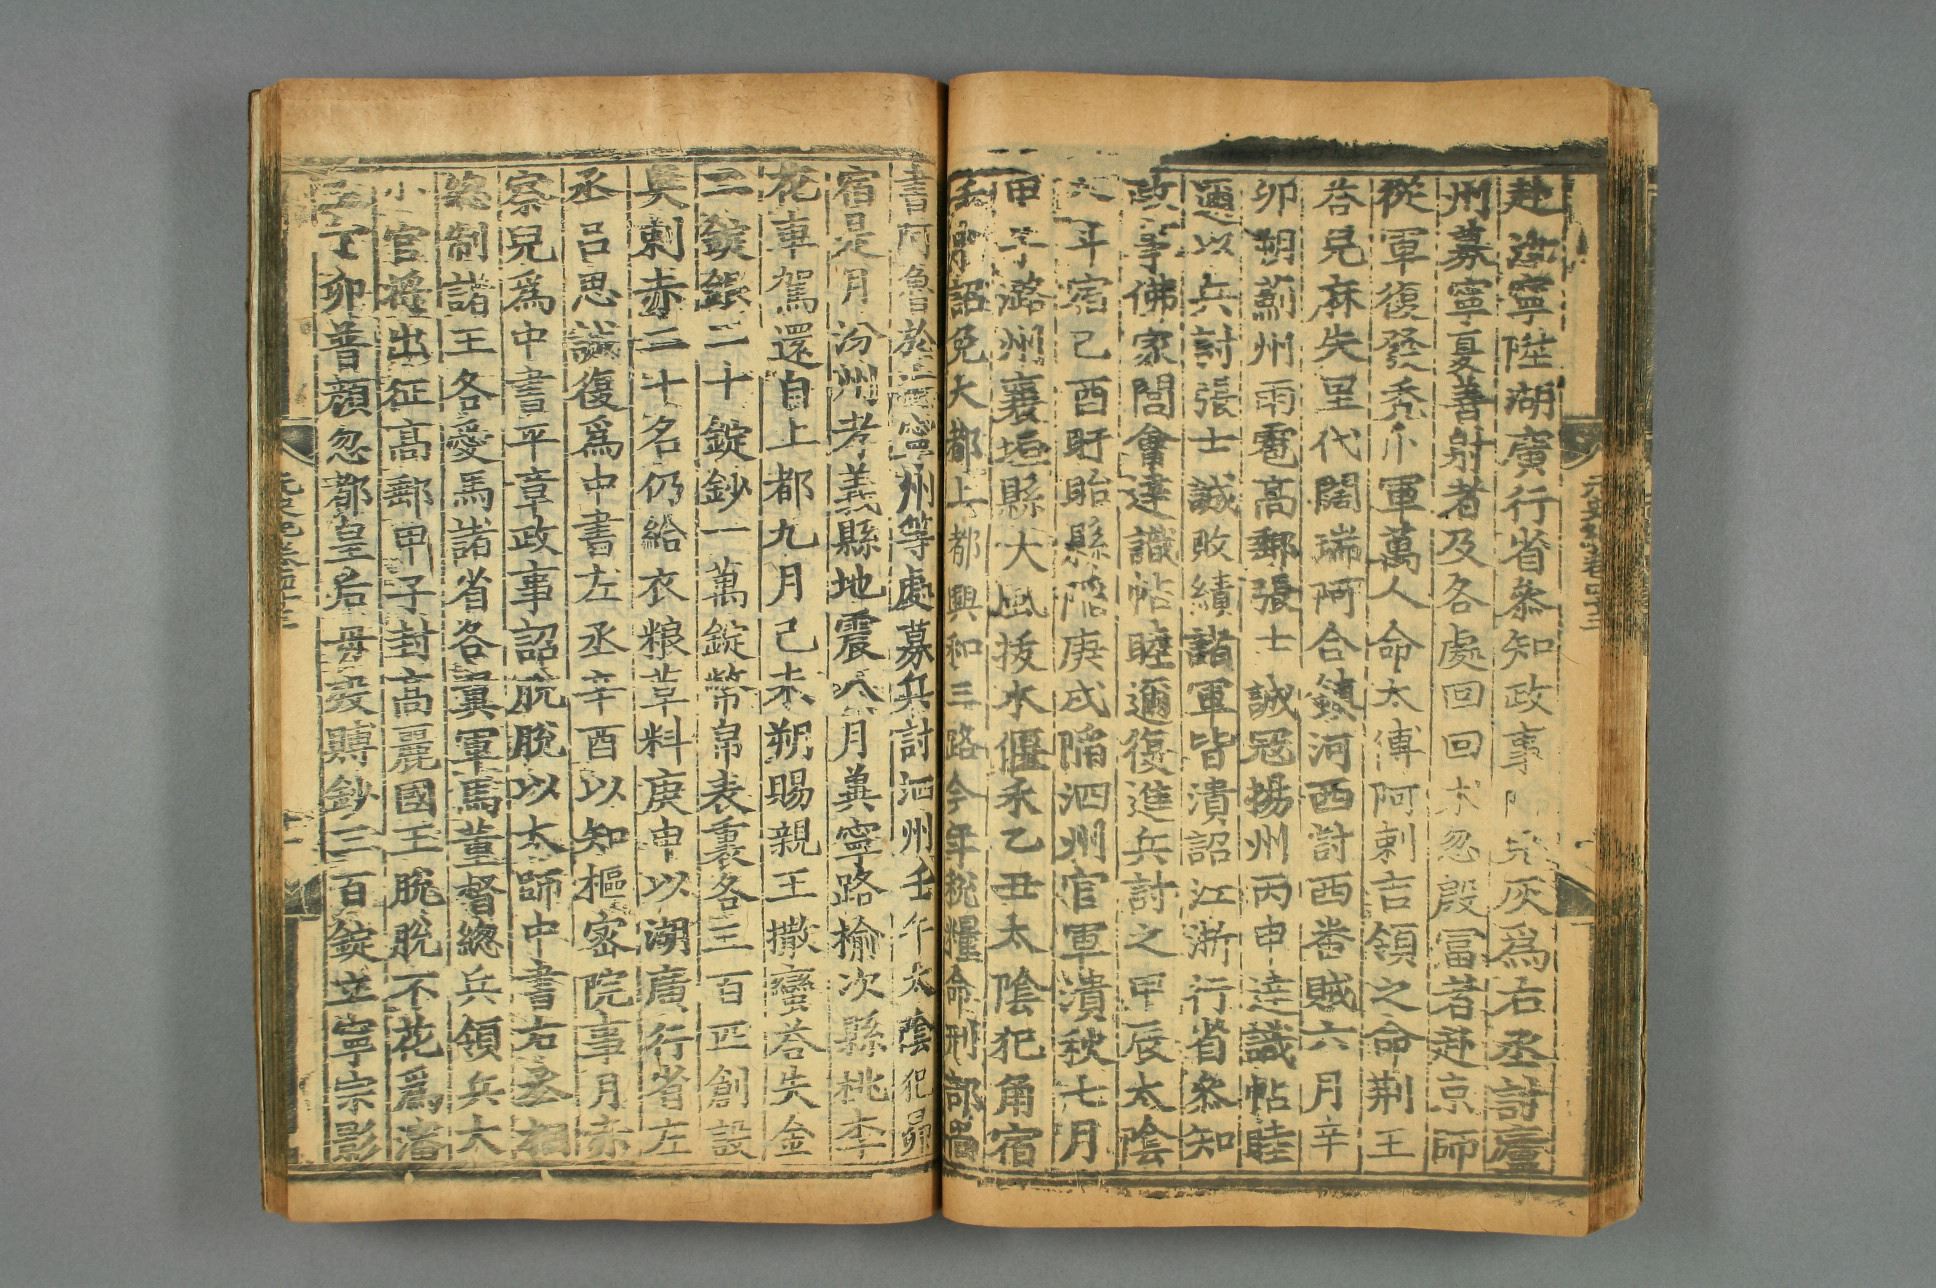 赴濟寧陞湖廣行省叅知政事阿兒灰爲右丞討廬
州募寧夏善射者及各處回回朮忽殷冨者赴京師
從軍復發禿卜軍萬人命太傅阿剌吉領之命荆王
荅兒麻失里代闊瑞阿合鎮河西討西畨賊六月辛
卯朔薊州雨雹髙郵張士誠冦揚州丙申達識帖睦
邇以兵討張士誠敗績諸軍皆潰詔江浙行省叅知
政事佛家閭會達識帖睦邇復進兵討之甲辰太陰
入斗宿己酉盱眙縣陷庚戌陷泗州官軍潰秋七月
甲子潞州襄垣縣大風拔木偃禾乙丑太陰犯角宿
壬申詔免大都上都興和三路今年稅糧命刑部尚
書阿魯於海寧州等處募兵討泗州壬午太陰犯昴
宿是月汾州孝義縣地震八月兾寧路榆次縣桃李
花車駕還自上都九月己未朔賜親王撒蠻荅失金
二錠銀二十錠鈔一萬錠幣帛表裏各三百匹創設
奧剌赤二十名仍給衣粮草料庚申以湖廣行省左
丞呂思誠復爲中書左丞辛酉以知樞密院事月赤
察兒爲中書平章政事詔脫脫以太師中書右丞相
緫制諸王各愛馬諸省各翼軍馬董督緫兵領兵大
小官將出征高郵甲子封高麗國王脫脫不花爲瀋
王丁卯普顔忽都皇后毋歿賻鈔三百錠立寧宗影
元史紀卷四十三
元史紀卷四十三
十一